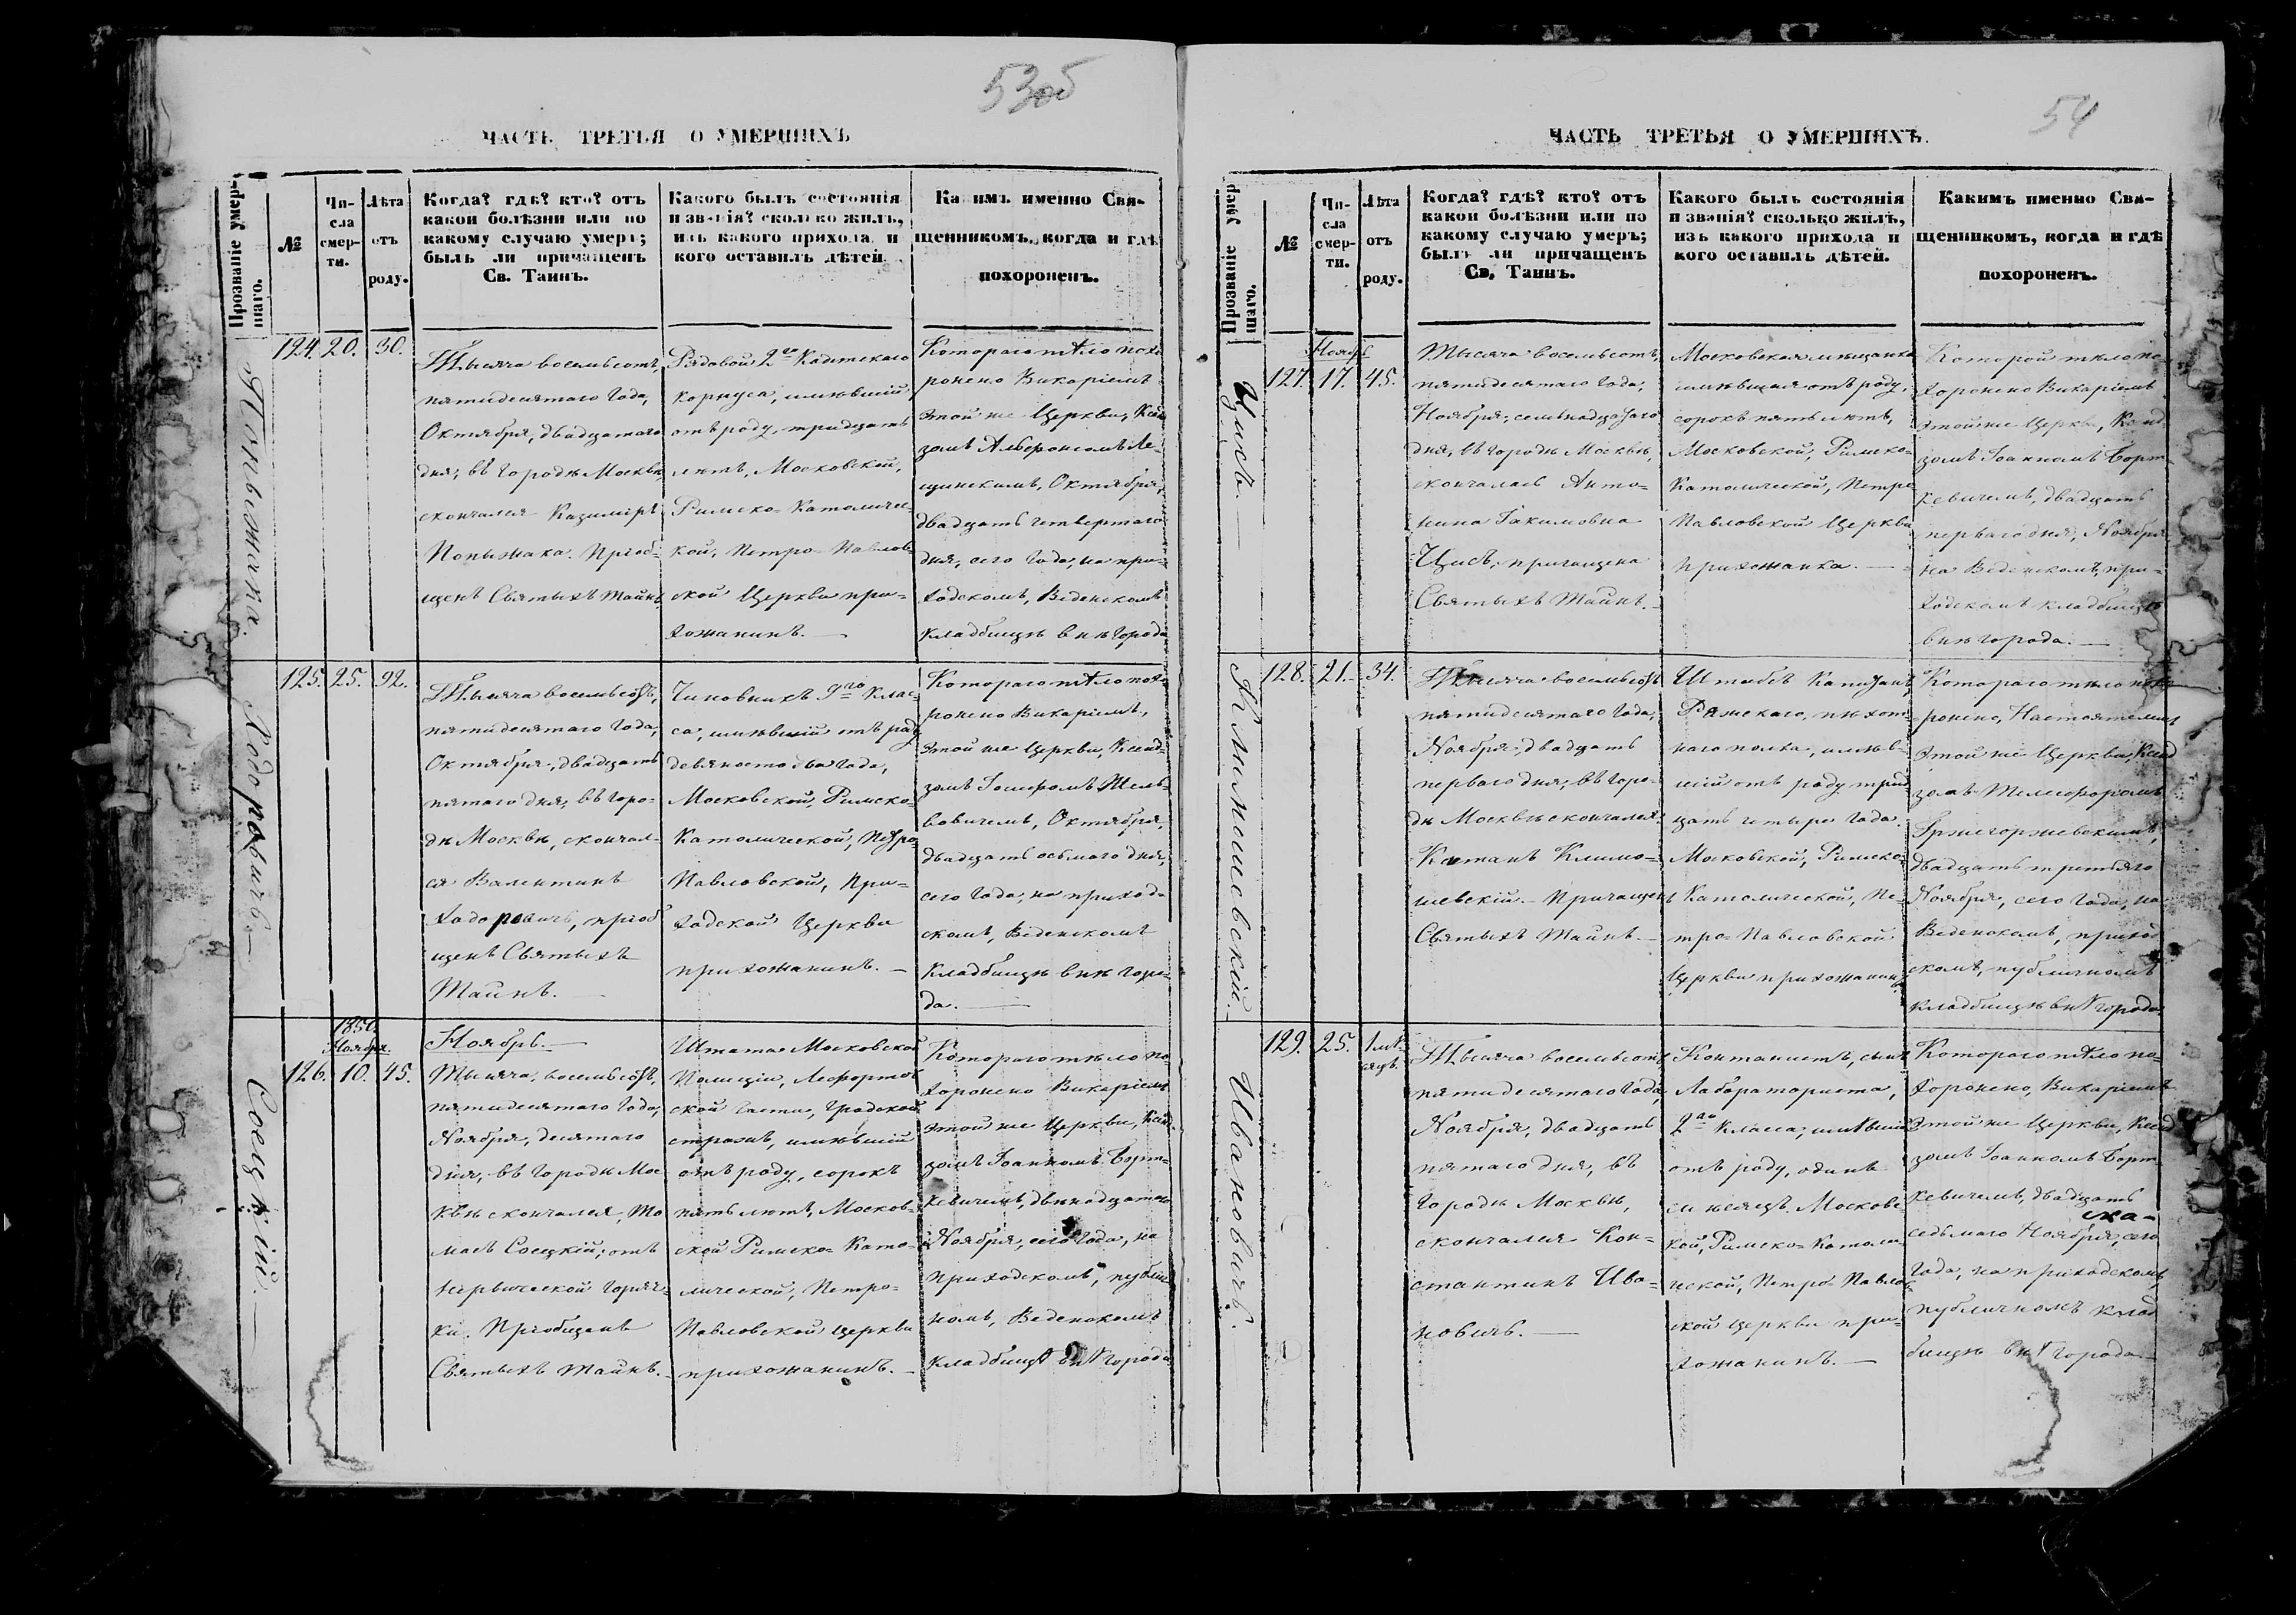 53об
ЧАСТЬ ТРЕТЬЯ О УМЕРШИХЪ
Прозваніе умер-
шаго.
№
Чи-
сла
смер-
ти.
Лѣта
отъ
роду.
Когда? гдѣ? кто? отъ
какой болѣзни или по
какому случаю умеръ;
былъ ли причащенъ
Св. Таинъ.
Какого былъ состоянія
и званія? сколько жилъ,
изъ какого прихода и
кого оставилъ дѣтей.
Какимъ именно Свя-
щенникомъ, когда и гдѣ
похороненъ.
124. 20. 30.
Тысяча восемьсотъ,
пятидесятаго Года,
Октября, двадцатаго
дня, въ городѣ Москвѣ,
скончался Казимиръ
Попыжака. Пріоб-
щенъ Святыхъ Тайнъ
Рядовой 2го Кадетскаго
Корпуса, имѣвшій
отъ роду, тридцать
лѣтъ, Московской,
Римско-Католичес-
кой, Петро-Павлов-
ской Церкви при-
хожанинъ. —
Котораго тѣло похо
ронено Викаріемъ
этой же Церкви, Ксен
зомъ Альфонсомъ Ле-
щинскимъ, Октября,
двадцать четвертаго
дня, сего Года, на при-
ходскомъ, Веденскомъ
кладбищѣ внѣ города
125. 25. 92.
Ходоровичъ. —
Тысяча восемьсотъ,
пятидесятаго Года,
Октября, двадцать
пятаго дня, въ горо-
дѣ Москвѣ, скончал-
ся Валентинъ
Ходоровичъ, пріоб
щенъ Святыхъ
Тайнъ. —
Чиновникъ 9го Клас-
са, имѣвшій отъ роду
девяносто два Года,
Московской, Римско-
Католической, Петро
Павловской, При-
ходской Церкви
прихожанинъ. —
Котораго тѣло похо-
ронено Викаріемъ,
этой же Церкви, Ксенд-
зомъ Іосифомъ Шель-
вовичемъ, Октября,
двадцать осьмаго дня,
сего Года, на приход-
скомъ, Веденскомъ
Кладбищѣ внѣ горо-
да. —
1850.
Ноября.
126. 10. 45.
Соецкій. —
Ноябрь. —
Тысяча, восемьсотъ,
пятидесятаго Года,
Ноября, десятаго
дня, въ городѣ Мос
квѣ скончался, То
масъ Соецкій, отъ
нервической горяч-
ки. Пріобщенъ
Святыхъ Тайнъ. —
Штата Московской
Полиціи, Лефортов
ской Части, градской
стражъ, имѣвшій
отъ роду, сорокъ
пять лѣтъ, Москов-
ской Римско-Като-
лической, Петро-
Павловской церкви
прихожанинъ. —
Котораго тѣло по-
хоронено Викаріемъ
этой же Церкви, Ксенд-
зомъ Іоанномъ Борт-
кевичемъ, двѣнадцатаго
Ноября, сего Года, на
приходскомъ, публич
номъ, Веденскомъ
кладбищѣ внѣ города
54
ЧАСТЬ ТРЕТЬЯ О УМЕРШИХЪ.
Прозваніе умер
шаго.
№
Чи-
сла
смер-
ти.
Лѣта
отъ
роду.
Когда? гдѣ? кто? отъ
какой болѣзни или по
какому случаю умеръ;
былъ ли причащенъ
Св. Таинъ.
Какого былъ состоянія
и званія? сколько жилъ,
изъ какого прихода и
кого оставилъ дѣтей.
Какимъ именно Свя-
щенникомъ, когда и гдѣ
похороненъ.
Ноября
127. 17. 45.
Цисъ. —
Тысяча восемьсотъ,
пятидесятаго Года,
Ноября, семьнадцатаго
дня, въ городѣ Москвѣ,
скончалась Анто-
нина Іакимовна
Цисъ, причащена
Святыхъ Тайнъ. —
Московская мѣщанка
имѣвшая отъ роду,
сорокъ пять лѣтъ,
Московской, Римско-
Католической, Петро
Павловской Церкви
прихожанка. —
Которой тѣло по-
хоронено Викаріемъ
этой же Церкви, Ксенд
зомъ Іоанномъ Борт-
кевичемъ, двадцать
перваго дня, Ноября
на Веденскомъ, при-
ходскомъ кладбищѣ
внѣ города. —
128. 21. 34.
Климошевскій. —
Тысяча восемьсотъ
пятидесятаго Года,
Ноября, двадцать
перваго дня, въ горо-
дѣ Москвѣ скончался
Каетанъ Климо-
шевскій. Причащенъ
Святыхъ Тайнъ. —
Штабсъ Капитанъ,
Ряжскаго, пѣхот-
наго полка, имѣв-
шій отъ роду трид
цать четыре Года.
Московской, Римско-
Католической, Пе-
тро-Павловской
Церкви прихожанинъ
Котораго тѣло похо
ронено, Настоятелемъ
этой же Церкви, Ксенд
зомъ Телесфоромъ
Гржегоржевскимъ,
двадцать третьяго
Ноября, сего Года, на
Веденскомъ, приход
скомъ, публичномъ
кладбищѣ внѣ города
129. 25. 1 мѣ-
сяцъ.
Ивановичъ. —
Тысяча восемьсотъ,
пятидесятаго Года
Ноября, двадцать
пятаго дня, въ
городѣ Москвѣ,
скончался Кон-
стантинъ Ива-
новичъ. —
Кантанистъ, сынъ
Лабораториста,
2го Класса, имѣвшій
отъ роду, одинъ
мѣсяцъ, Московс
кой, Римско-Католи-
ческой, Петро-Павлов-
ской церкви при-
хожанинъ. —
Котораго тѣло по-
хоронено, Викаріемъ
этой же Церкви, Ксенд
зомъ Іоанномъ Борт-
кевичемъ, двадцать
седьмаго Ноября, сего
Года, на приходскомъ,
публичномъ клад
бищѣ внѣ города —